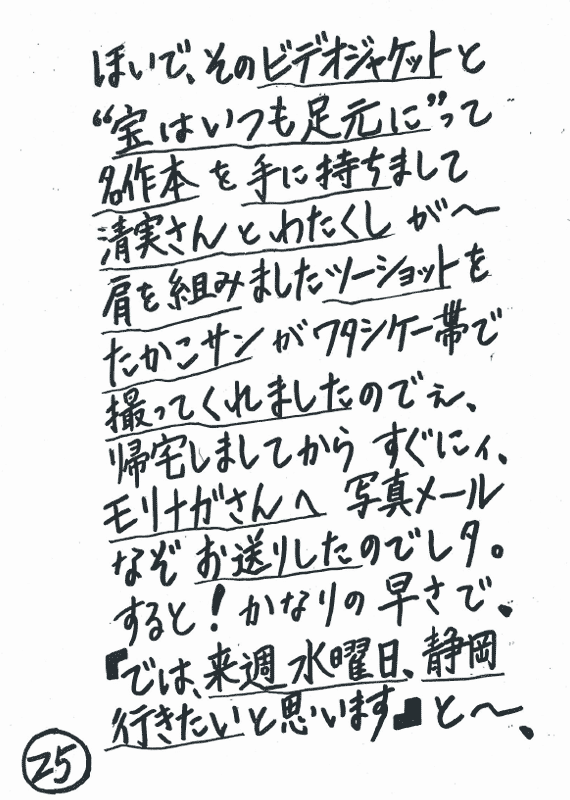 ほいで、そのビデオジャケットと
“宝はいつも足元に”って
名作本を手に持ちまして
清実さんとわたくしが〜
肩を組みましたツーショットを
たかこサンがワタシケー帯で
撮ってくれましたのでぇ、
帰宅しましてからすぐにィ、
モリナガさんへ 写真メール
なぞお送りしたのでしタ。
すると！かなりの早さで、
『では、来週水曜日、静岡
行きたいと思います』と〜、
25